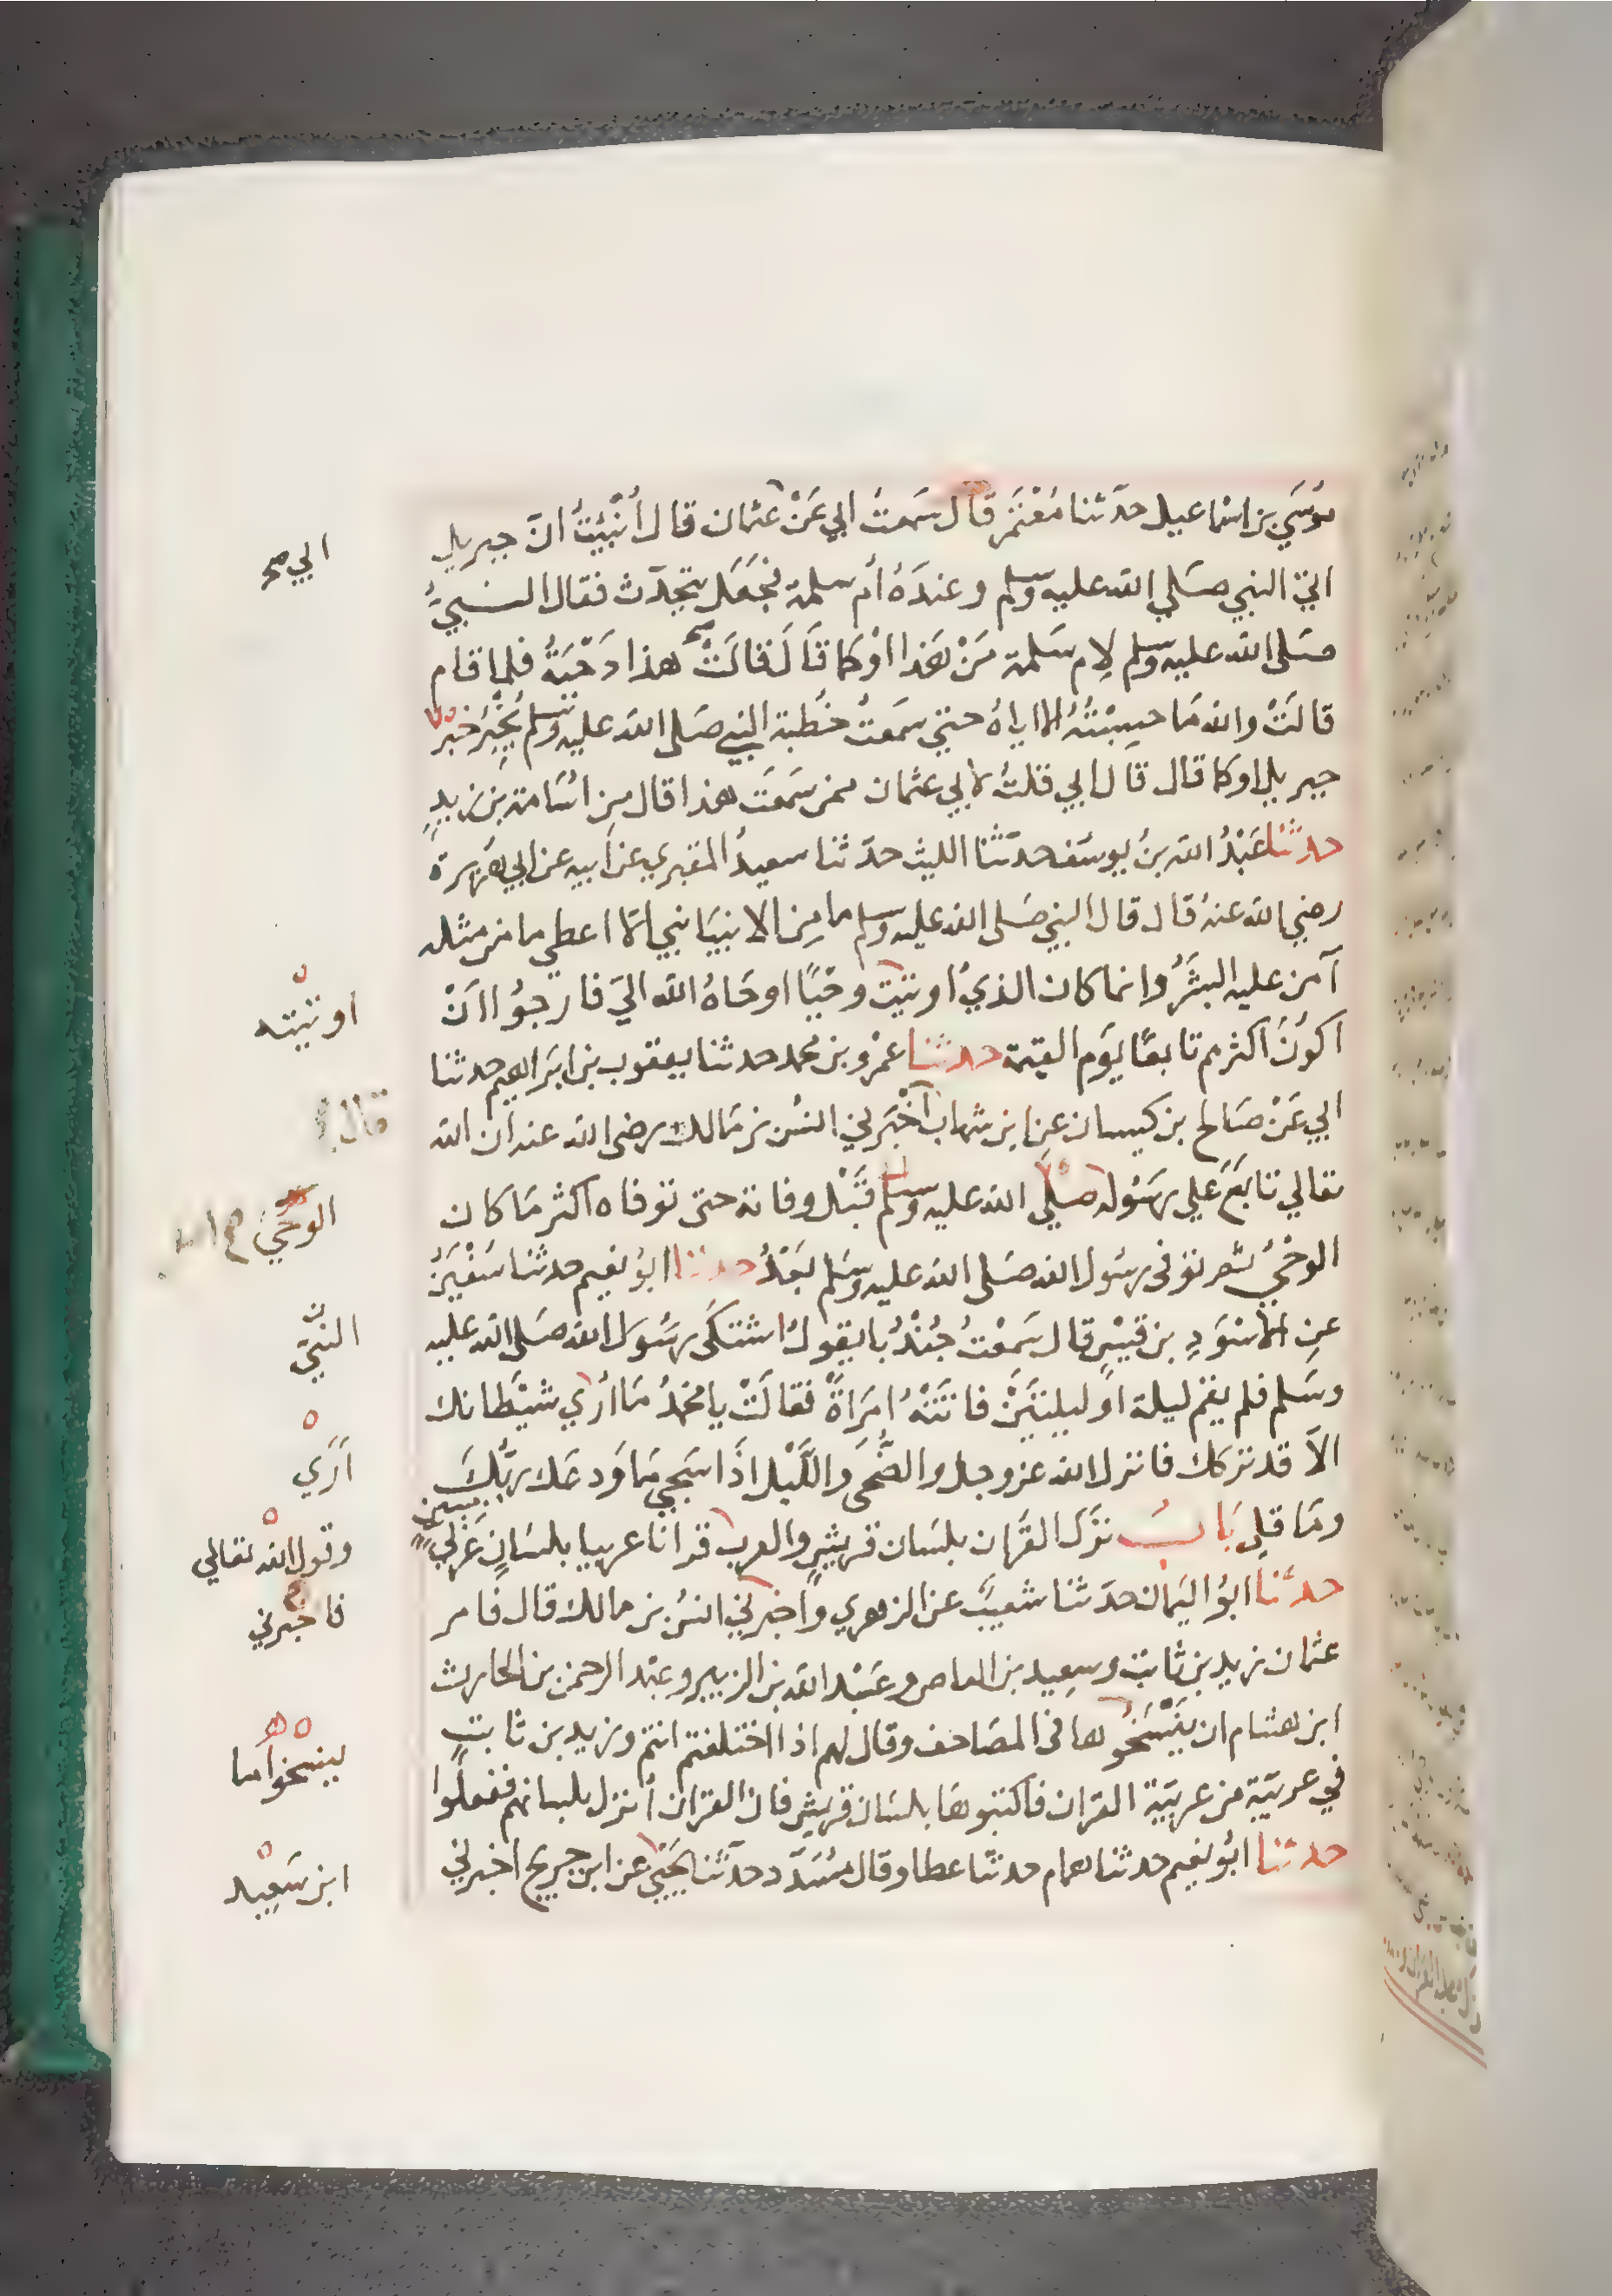 مُوسَي بن اسْماعيل حدّثنا مُعْتَمَر قال سَمعتُ ابي عَنْ عثمان قال أُنْبِيْتُ انّ جبريل
اتي النبي صَلي الله عليه وسلم وعندَهُ أم سلمة فجعَل يتحدّث فقال النبيُّ
صَلى الله عليه وسلم لِام سَلمة مَنْ هَذا اوْ كما قَالَ فقالَتْ هذا دَحْيَةُ فلما قام
قالَتْ والله مَا حسِبْتُهُ الا اياهُ حتي سَمعتُ خُطبة النبي صَلى الله عليه وسلم يُخْبِرُ خبَر
جبريل او كما قال قال ابي قلتُ لابي عثمان ممن سَمعتَ هذا قال مِن اسَامة بن زيدٍ
حدثنا عَبْدُ الله بنُ يوسَف حدّثنا الليث حدّثنا سعيدُ المقبري عن ابيه عن ابي هُريرة
رضي الله عنهُ قال قال النبي صَلى الله عليه وسلم ما مِن الانبيَا نبي الّا اعطي ما من مثله
آمن عليه البشَرُ وانما كان الذي أوتيت وحْيًا اوحَاهُ الله اليّ فارجوُا انْ
اكونَ اكثرهم تابعًا يوَم القيمة حدثنا عمْرو بن محمد حدثنا يعقوب بن ابرَاهيم حدثنا
ابي عَنْ صَالح بن كيسان عن ابن شهاب اخْبَرني انسُ بن مَالك رضى الله عنه ان الله
تعالي تابَعَ عَلي رسَوله صَلي الله عليه وسلم قَبْل وفاته حتى توفاه اكثر مَا كان
الوحْيُ ثم توفى رسُول الله صَلى الله عليه وسَلم بَعْدُ حدثنا ابوُ نعيم حدثنا سُفْيَنُ
عن الاسْوَدِ بن قيْسٍ قال سَمِعْتُ جُنْدُبا يقولُ اشتكَى رسَوُلُ الله صَلى الله عليه
وسَلم فلم يقم ليلة اوْ ليلتَيْنِ فاتَتْهُ امَرَاةٌ فقالَتْ يا محمدُ مَا أرَي شيْطانك
الاّ قد تركك فانزل الله عز وجل والضُّحَى وَاللَّيْل اذَا سَجي مَا وَدعَك ربُّكَ
ومَا قلِي بَابُ نزَل القران بلسَان قريشٍ والعرب قرانا عربيا بلسَانٍ عَرَبيٍ مبين
حدثنا ابوُ اليَمان حدَثنا شعيبٌ عن الزهري واخبرني انسُ بن مالك قال فامر
عثمان زيد بن ثابت وسعِيد بن العاص وعَبْد الله بن الزبير وعبْد الرحمن بن الحارث
ابن هشام ان ينْسَخُوها فى المصَاحف وقال لهم اذا اختلفتم انتم وزيد بن ثابتٍ
في عربيّة من عربيّة القرَان فاكتبوهَا بلسَان قريش فان القران أنزل بلسانهم ففعلُوا
حدثنا ابوُ نعيم حدثنا همام حدثنا عطا وقال مُسَدّد حدّثنا يحْيَى عن ابن جريج اخبرني
الي صح
اوتيته
قال
الوحْيَ
النبيّ
اَرَي
وقول الله تعالي
فاخبرني
ينسخوا ما
ابن سَعِيد